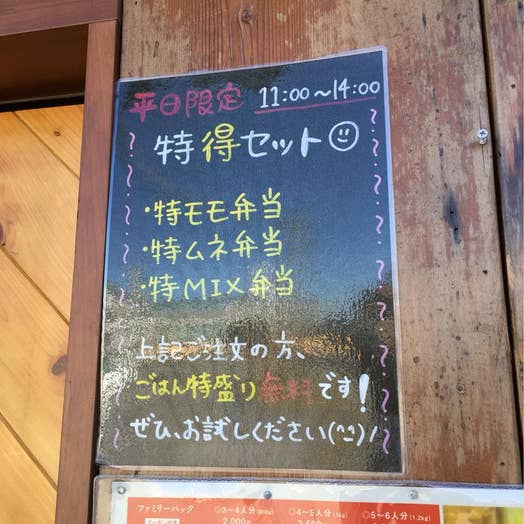 平日限定 11:00～14:00
特得セット
・特モモ弁当
・特ムネ弁当
・特MIX弁当
上記ご注文の方、
ごはん特盛り無料です!
ぜひ、お試しください(^^)/
ファミリーパック ◎3~4人分(800g) ◎4~5人分(1kg) ◎5~6人分(1.2kg)